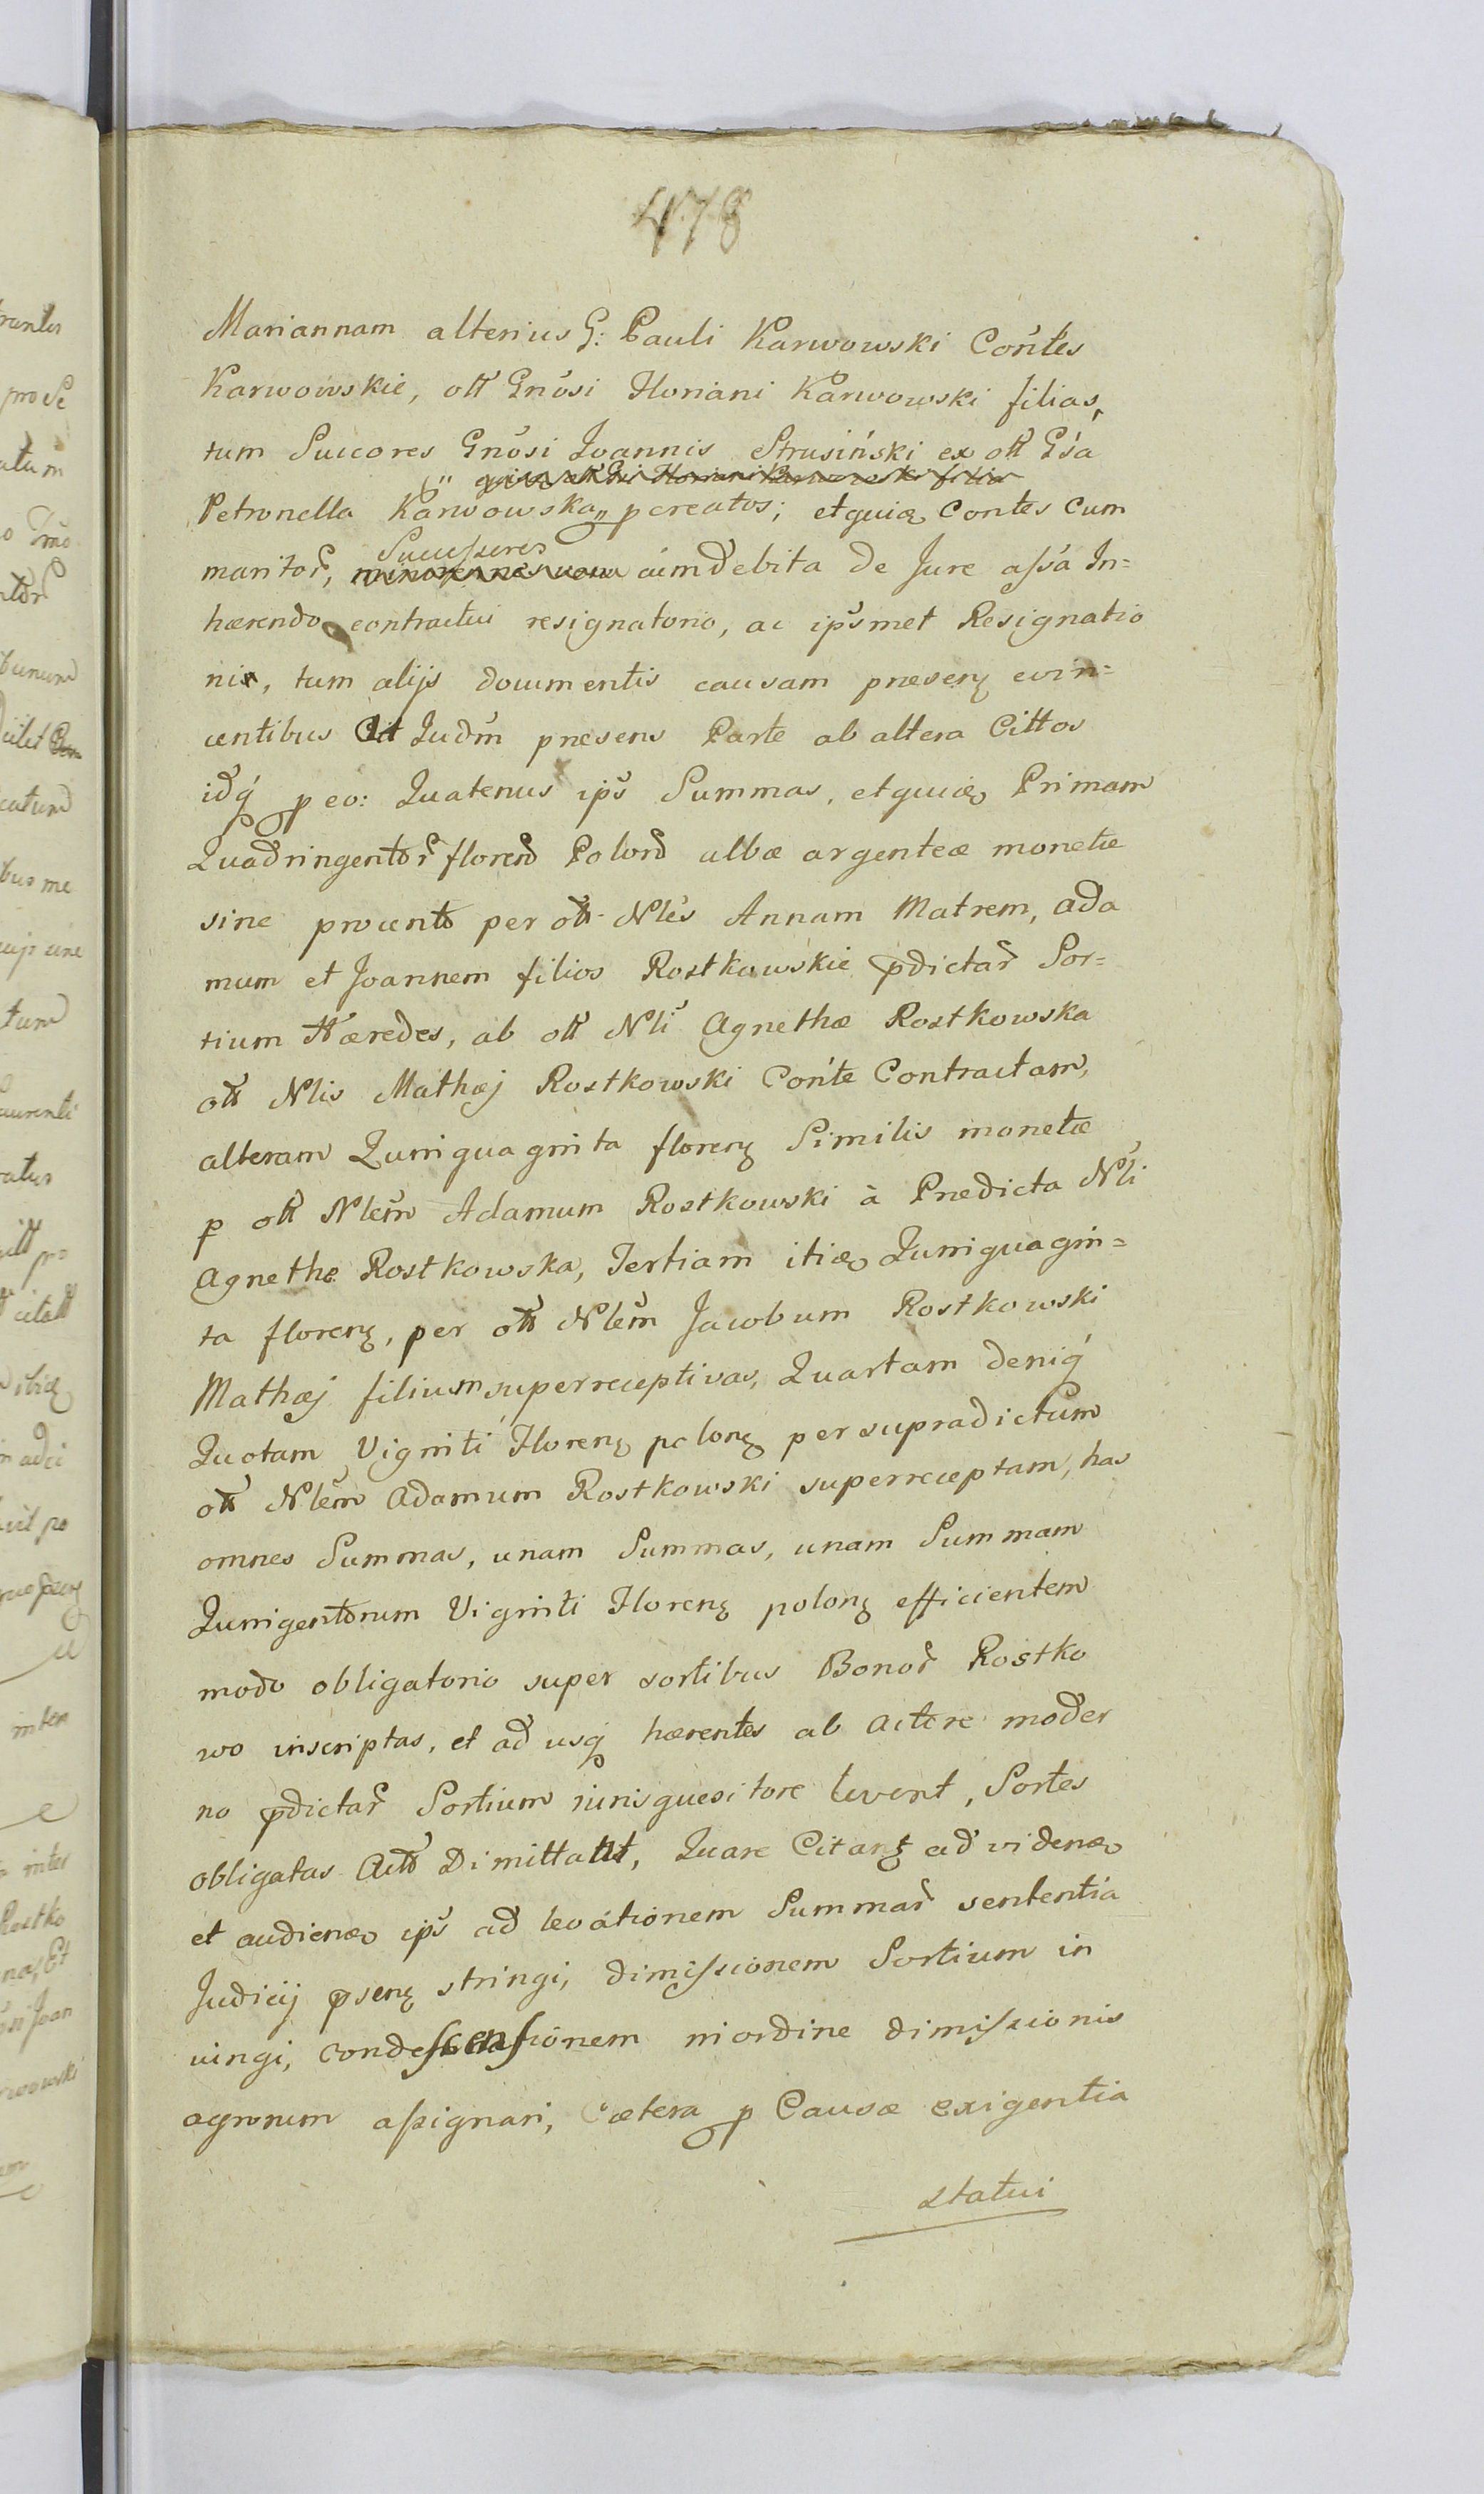 478
Mariannam alterius G: Pauli Karwowski Cońtes
Karwowskie, ott Gnosi Floriani Karwowski filias,
tum Succores Gnosi Joannis Strusiński ex ott Gsa
Petronella Karwowska,, pcreatos; etquidę Contes Cum
Successores
maritor, cumdebita de Jure assa In=
hærendo contractui resignatorio, ac ipsmet Resignatio
nis, tum alijs documentis causam præsenę evin=
centibus Cit Judm presens Parte ab altera Cittos
idq peo: Quatenus ips Summas, etquidę Primam
Quadringentor floren Polon albæ argenteæ monetæ
sine procento per ott Nles Annam Matrem, Ada
mum et Joannem filios Rostkowskie pdictar Sor=
tium Hæredes, ab ott Nli Agnetha Rostkowska
ott Nlis Mathæj Rostkowski Conte Contractam,
alteram Quinquaginta florenę Similis monetæ
p ott Nlem Adamum Rostkowski à Predicta Nli
Agnethe Rostkowska, Tertiam itidę Quinquagin=
ta florenę, per ott Nlem Jacobum Rostkowski
Mathæj filium superreceptivas, Quartam deniq
Quotam Viginti Florenę polonę per supradictum
ott Nlem Adamum Rostkowski superreceptam, has
omnes Summas, unam Summas, unam Summam
Quingentorum Viginti Florenę polonę efficientem
modo obligatorio super sortibus Bonor Rostko
wo inscriptas, et ad usq hærentes ab Actore moder
no pdictar Sortium iurisquesitore levent, Sortes
obligatas Actt Dimittant, Quare Citantę ad vidend
et audiend ips ad levationem Summar sententia
Judicij psenę stringi, dimissionem Sortium in
iungi, condescensionem in ordine dimissionis
agrorum assignari, Cætera p Causæ exigentia
statui